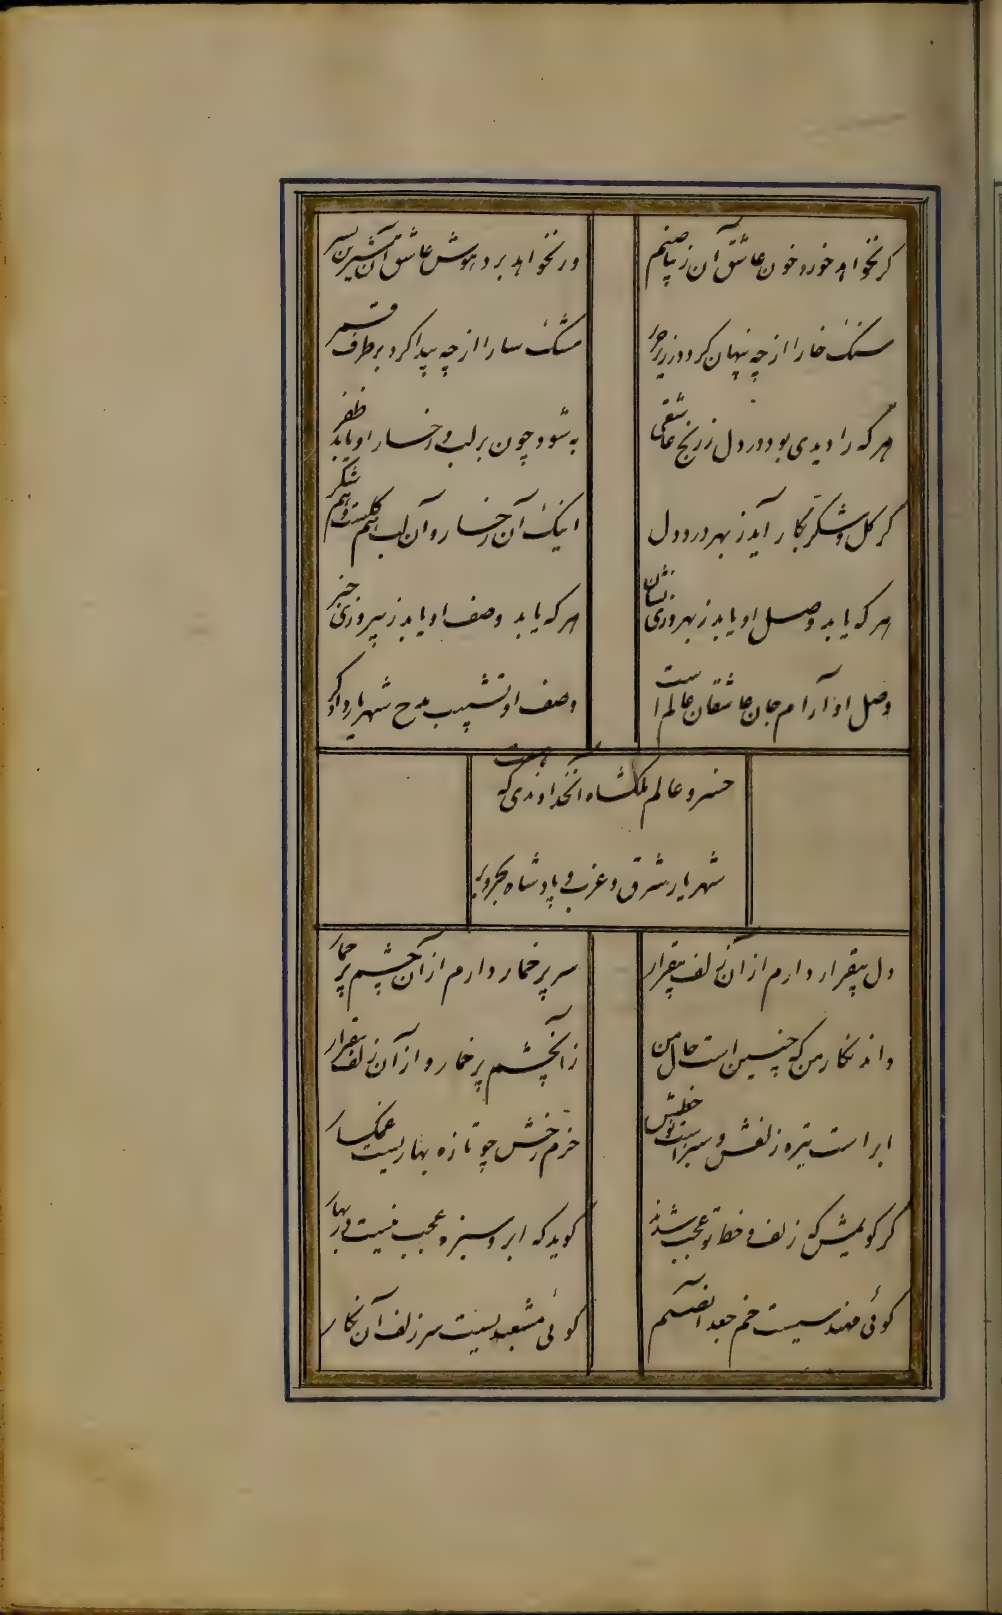 کر نخواهد خورد خون عاشق آن زیبا صنم
ور نخواهد برد هوش عاشق آن شیرین پسر
سنک خارا از چه پنهان کرد در زیر حریر
مشک سارا از چه پیدا کرد بر طرف قمر
هر که را دیدی بود در دل ز رنج عاشقی
به شود چون بر لب و رخسار او یابد ظفر
کر کل و شکر بکار آید ز بهر درد دل
اینک آن رخسار و آن لب هم کلست و هم شکر
هر که یابد وصل او یابد ز بهروزی نشان
هر که یابد وصف او یابد ز پیروزی خبر
وصل او آرام جان عاشقان عالم است
وصف او تشبیب مدح شهریار دادکر
خسرو عالم ملکشاه آنخداوندی که هست
شهریار شرق و غرب و پادشاه بحر و بر
دل بیقرار دارم از آن زلف بیقرار
سر پر خمار دارم از آن چشم پر خمار
داند نکار من که چنین است حال من
زانچشم پر خمار و از آن زلف بیقرار
ابر است تیره زلفش و سبز است نو خطش
خرم رخش چو تازه بهاریست غمکسار
کر کویمش که زلف و خط تو عجب شدند
کوید که ابر و سبزه عجب نیست در بهار
کوئی مهندسیست خم جعد آن صنم
کوئی مشعبدیست سر زلف آن نکار